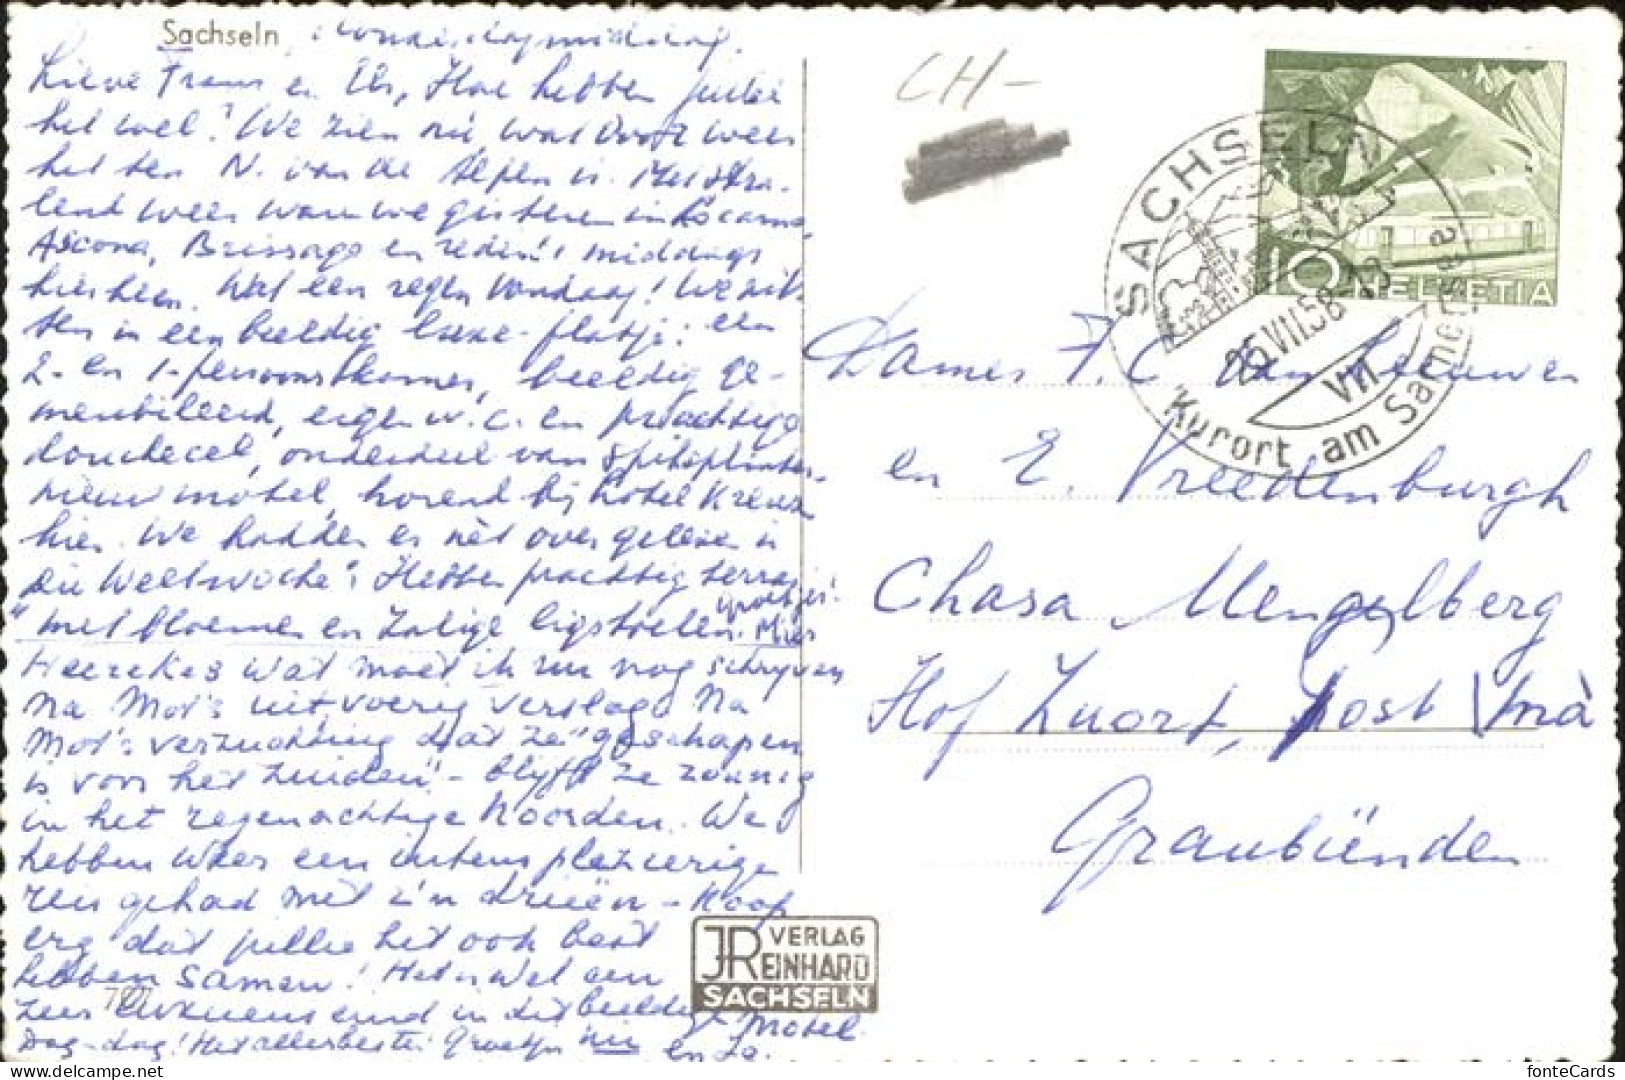 Sachseln, Donderdagmiddag.
Lieve Frans en Els, Hoe hebben jullie
het wel? We zien nu wat voor weer
het ten N. van de Alpen is. Het Stra-
lend weer waren we gisteren in Locarno,
Ascona, Brissago en reden 's middags
hierheen. Wat een regen vandaag! We zit-
ten in een beeldig luxe-flatje: een
2- en 1-persoonskamer, beeldig ge-
meubileerd, eigen w.c. en prachtige
douchecel, onderdeel van splinter-
nieuw motel, horend bij hotel Kreuz
hier. We hadden er nèt over gelezen in
"Die Weltwoche". Hebben prachtig terras
met bloemen en zalige ligstoelen. Mies
groetjes!
Heerekes wat moet ik nu nog schrijven
Na Mot's uitvoerig verslag. Na
Mot's verzuchting dat ze "geschapen
is voor het zuiden" - blijft ze zonnig
in het regenachtige Noorden. We
hebben weer een intens plezierige
reis gehad met z'n drieën - Hoop
erg dat jullie het ook best
hebben samen! Het is wel een
zeer luxueus eind in dit beeldige motel.
Dag-dag! Het allerbeste! Groetjes
CH-
SACHSELN
25.VII.58
Kurort am Sarnersee
10 HELVETIA
Dames F. C. van Leeuwen
en E. Vreedenburgh
Chasa Mengelberg
Hof Zuort, post Vnà
Graubünden
JR VERLAG
REINHARD
SACHSELN
delcampe.net
fonteCards